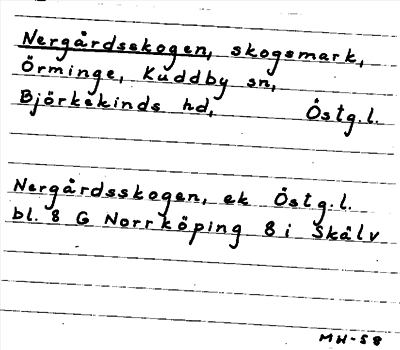 Nergårdsskogen, skogsmark,
Örminge, Kuddby sn,
Björkekinds hd, Östg.l.
Nergårdsskogen, ek Östg.l.
bl. 8 G Norrköping 8 i Skälv
MH-58